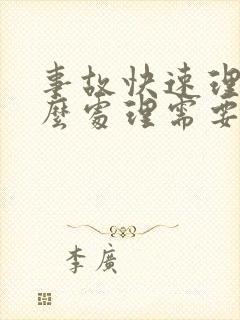 事故快速理
麽處理需要
李廣